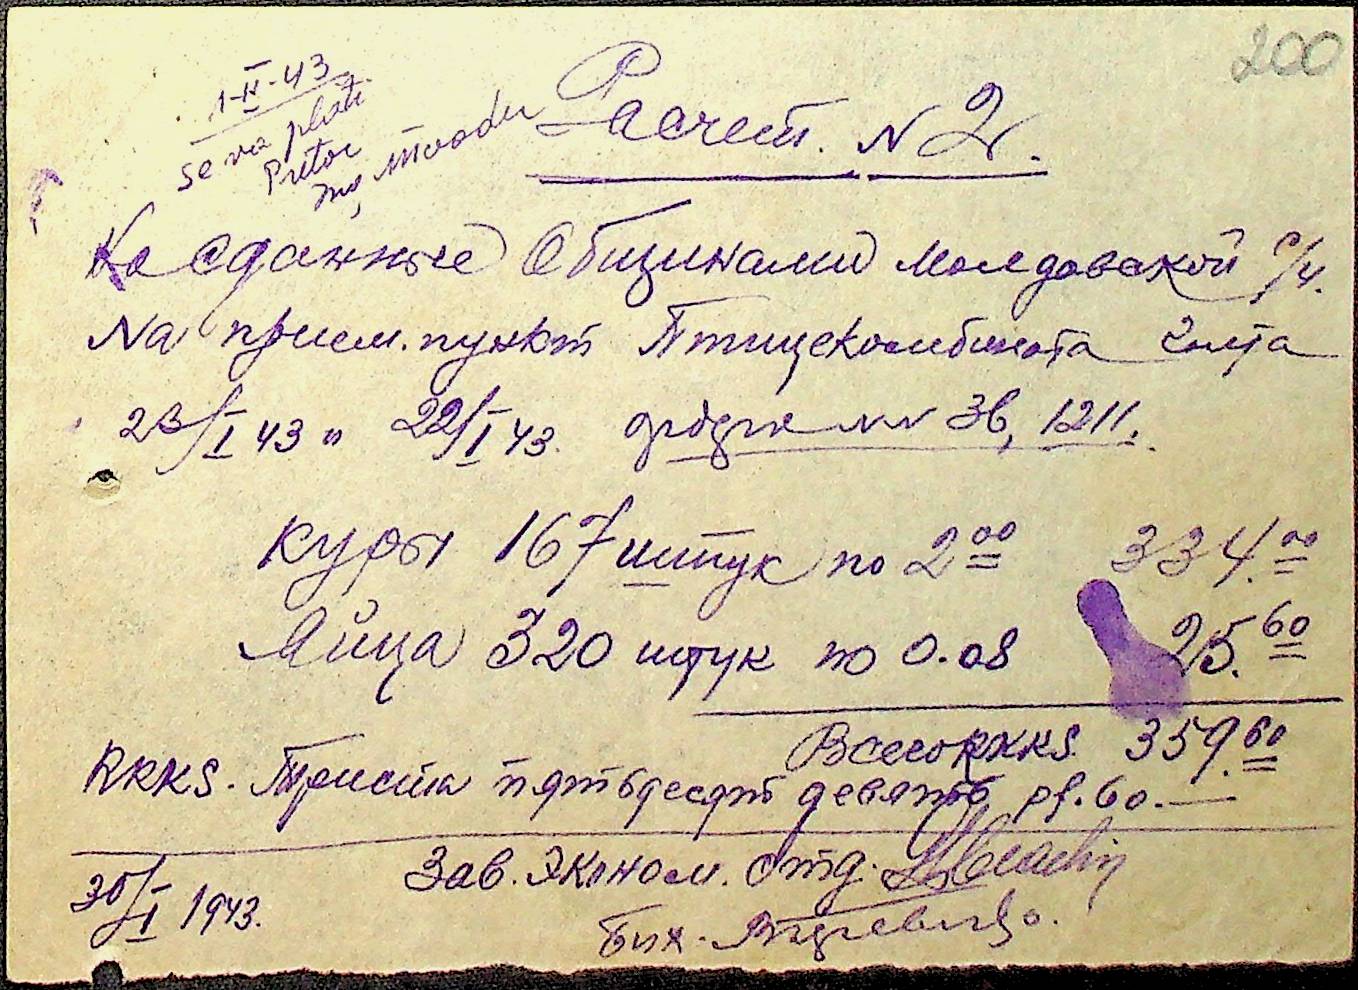 200
1-II-43
se va plăti
Pretor
Расчет. N 2.
На сданные Общинами Молдовской с/у.
Na прием. пункт Птицекомбината Голта
23/I 43 и 22/I 43. ордера NN 36, 1211.
Куры 167 штук по 2 00 334. 00
Яйца 320 штук по 0.08 25. 60
Всего RKKS. 359. 60
RKKS. Триста пятьдесят девять pf. 60.
30/I 1943. Зав. Эконом. отд.
Бух.